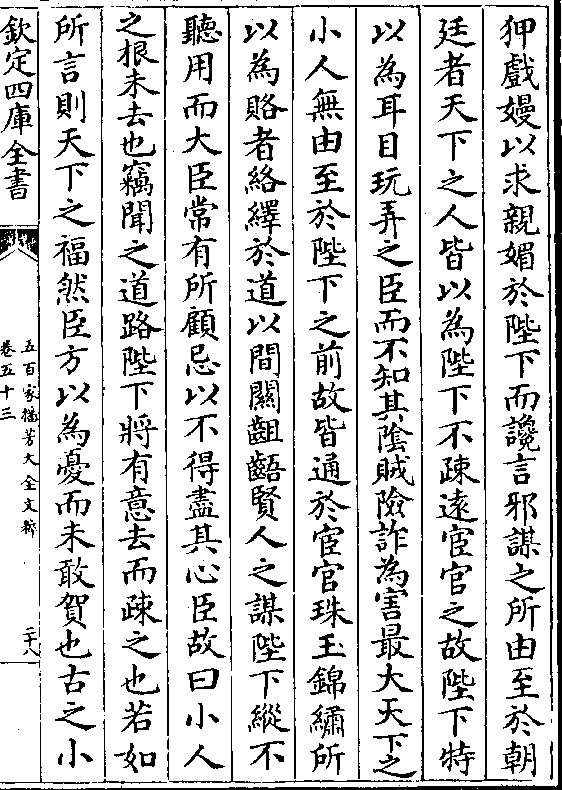 狎戲嫚以求親媚於陛下而讒言邪謀之所由至於朝
廷者天下之人皆以為陛下不疎遠宦官之故陛下特
以為耳目玩弄之臣而不知其陰賊險詐為害最大天下之
小人無由至於陛下之前故皆通於宦官珠玉錦繡所
以為賂者絡繹於道以間關齟齬賢人之謀陛下縱不
聽用而大臣常有所顧忌以不得盡其心臣故曰小人
之根未去也竊聞之道路陛下將有意去而疎之也若如
所言則天下之福然臣方以為憂而未敢賀也古之小
欽定四庫全書
五百家播芳大全文粹
卷五十三
二十八